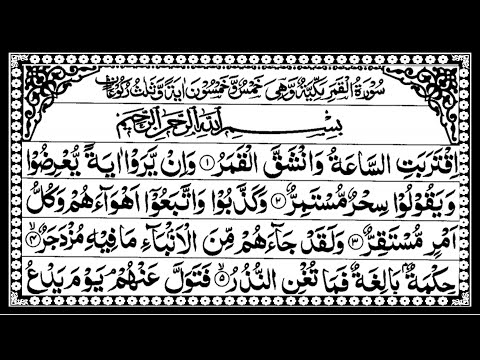 سُوْرَةُ الْقَمَرِ مَكِّيَّةٌ وَّهِيَ خَمْسٌ وَّخَمْسُوْنَ اٰيَةً وَّثَلٰثُ رُكُوْعَاتٍ
بِسْمِ اللّٰهِ الرَّحْمٰنِ الرَّحِيْمِ
اِقْتَرَبَتِ السَّاعَةُ وَانْشَقَّ الْقَمَرُ ۝۱ وَاِنْ يَّرَوْا اٰيَةً يُّعْرِضُوْا
وَيَقُوْلُوْا سِحْرٌ مُّسْتَمِرٌّ ۝۲ وَكَذَّبُوْا وَاتَّبَعُوْٓا اَهْوَآءَهُمْ وَكُلُّ
اَمْرٍ مُّسْتَقِرٌّ ۝۳ وَلَقَدْ جَآءَهُمْ مِّنَ الْاَنْۢبَآءِ مَا فِيْهِ مُزْدَجَرٌ ۝۴ۙ
حِكْمَةٌۢ بَالِغَةٌ فَمَا تُغْنِ النُّذُرُ ۝۵ۙ فَتَوَلَّ عَنْهُمْ يَوْمَ يَدْعُ